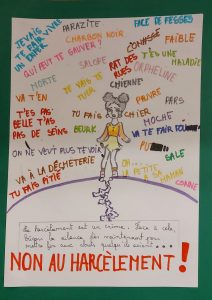 JE VAIS
TE FAIRE VIVRE
UN ENFER
PARAZITE
FACE DE FESSES
CHARBON NOIR
CONASSE
FAIBLE
QUI FAIT TE SAUVER ?
SALOPE
RAT DES
RUES
T'ES UNE
MALADIE
ORPHELINE
MORTE
JE VAIS TE
TUER
CHIENNE
VA T'EN
PAUVRE
PARS
T'ES PAS
BELLE T'AS
PAS DE SEINS
TU FAIS
CHIER
MOCHE
BEURK
VA TE FAIRE
ON NE VEUT PLUS TE VOIR
PU
SALE
VA À LA DÉCHETERIE
TU FAIS PITIÉ
LA PETITE
À SA MAMAN
CONNE
Le harcèlement est un crime. Face à cela,
brisons le silence dès maintenant pour
mettre fin aux abus quelqu'ils soient...
NON AU HARCÈLEMENT !